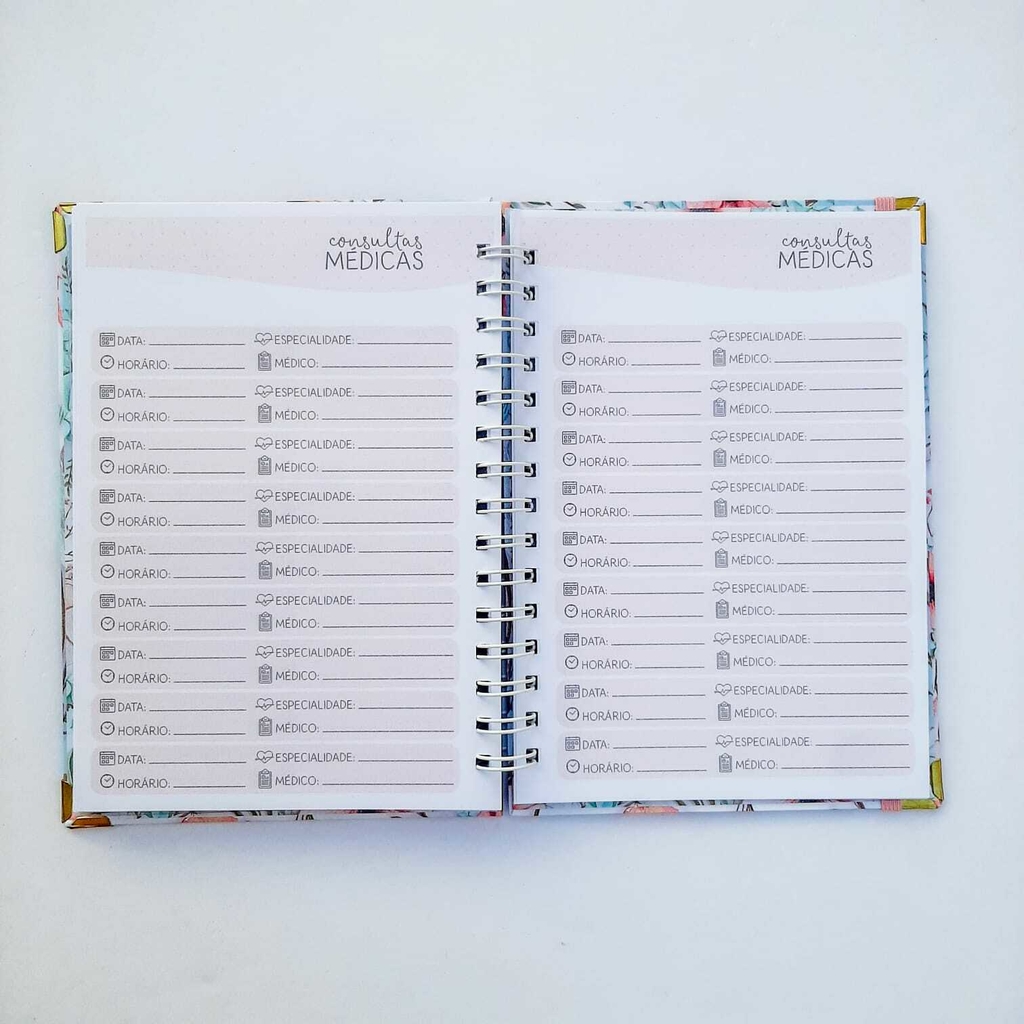 consultas
MÉDICAS
DATA: ESPECIALIDADE:
HORÁRIO: MÉDICO:
DATA: ESPECIALIDADE:
HORÁRIO: MÉDICO:
DATA: ESPECIALIDADE:
HORÁRIO: MÉDICO:
DATA: ESPECIALIDADE:
HORÁRIO: MÉDICO:
DATA: ESPECIALIDADE:
HORÁRIO: MÉDICO:
DATA: ESPECIALIDADE:
HORÁRIO: MÉDICO:
DATA: ESPECIALIDADE:
HORÁRIO: MÉDICO:
DATA: ESPECIALIDADE:
HORÁRIO: MÉDICO:
DATA: ESPECIALIDADE:
HORÁRIO: MÉDICO:
consultas
MÉDICAS
DATA: ESPECIALIDADE:
HORÁRIO: MÉDICO:
DATA: ESPECIALIDADE:
HORÁRIO: MÉDICO:
DATA: ESPECIALIDADE:
HORÁRIO: MÉDICO:
DATA: ESPECIALIDADE:
HORÁRIO: MÉDICO:
DATA: ESPECIALIDADE:
HORÁRIO: MÉDICO:
DATA: ESPECIALIDADE:
HORÁRIO: MÉDICO:
DATA: ESPECIALIDADE:
HORÁRIO: MÉDICO:
DATA: ESPECIALIDADE:
HORÁRIO: MÉDICO:
DATA: ESPECIALIDADE:
HORÁRIO: MÉDICO: